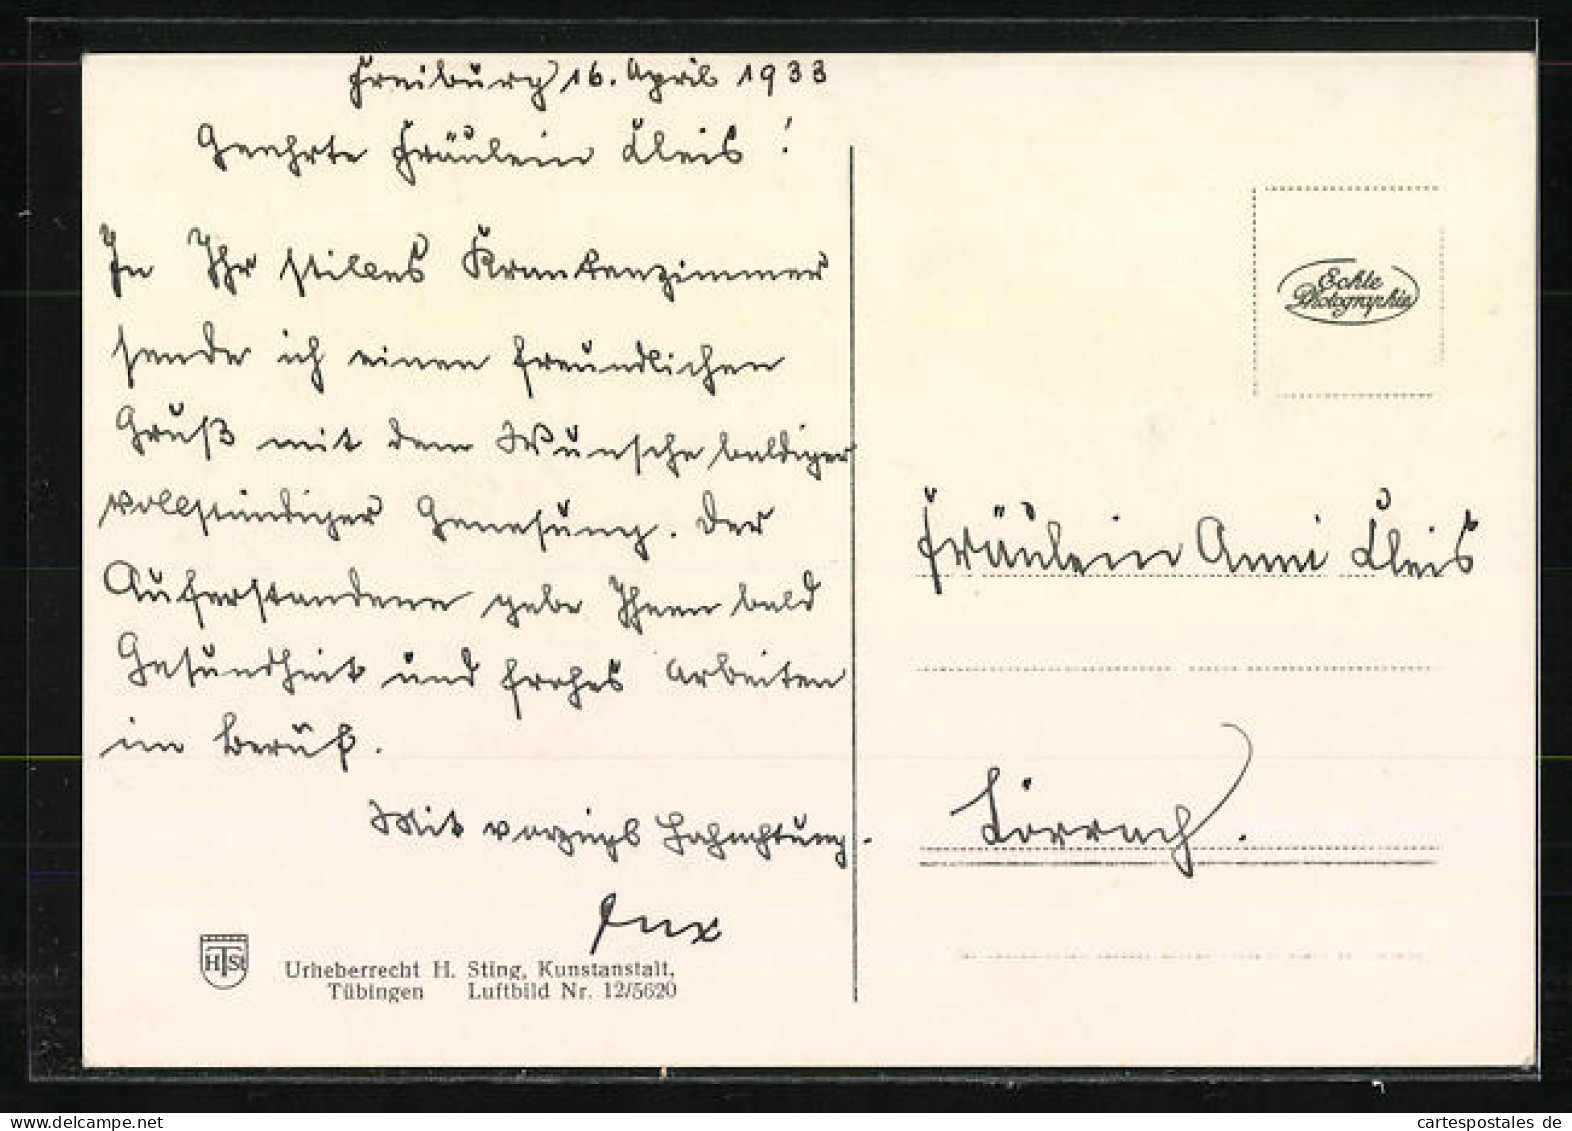 Freiburg 16. April 1933
Geehrte Fräulein Kleis!
In Ihr stilles Krankenzimmer
sende ich einen freundlichen
Gruß mit dem Wunsche baldiger
vollständiger Genesung. Der
Auferstandene gebe Ihnen bald
Gesundheit und frohes Arbeiten
im Beruf.
Mit vorzügl Hochachtung.
Urheberrecht H. Sting, Kunstanstalt,
Tübingen Luftbild Nr. 12/5620
HTSt
Echte
Photographie
Fräulein Anni Kleis
Lörrach.
cartespostales.de